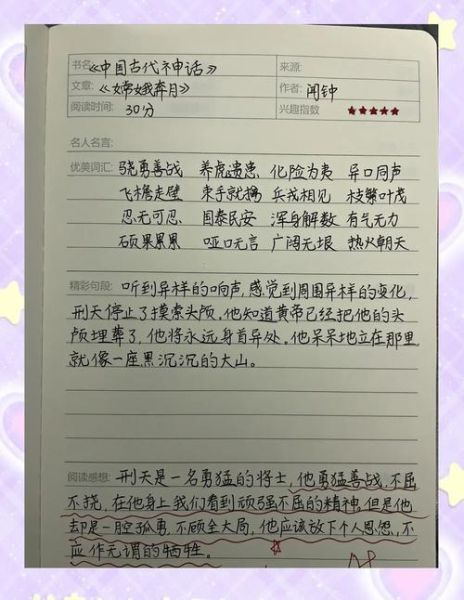 书名:《中国古代神话》 来源:
文章:《嫦娥奔月》 作者: 闻钟
阅读时间: 30分 兴趣指数 ★★★★★
名人名言:
优美词汇: 骁勇善战 养虎遗患 化险为夷 异口同声
飞檐走壁 束手就擒 兵戎相见 枝繁叶茂
忍无可忍 国泰民安 浑身解数 有气无力
硕果累累 哑口无言 广阔无垠 热火朝天
精彩句段: 听到异样的响声,感觉到周围异样的变化,
刑天停止了摸索头颅,他知道黄帝已经把他的头
颅埋葬了,他将永远身首异处,他呆呆地立在那里
就像一座黑沉沉的大山。
阅读感想: 刑天是一名勇猛的将士,他勇猛善战,不屈
不挠,在他身上我们看到顽强不屈的精神,但是他
却是一腔孤勇,不顾全大局,他应该放下个人恩怨,不
应作无谓的牺牲。